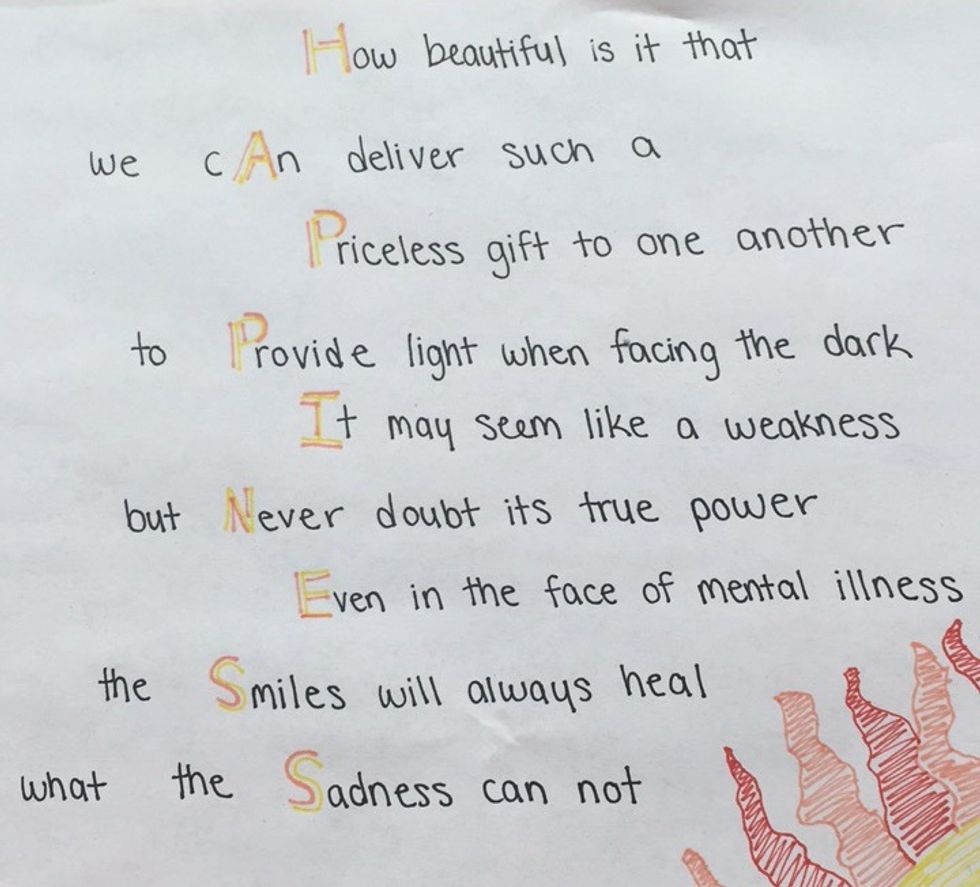 How beautiful is it that
we cAn deliver such a
Priceless gift to one another
to Provide light when facing the dark
It may seem like a weakness
but Never doubt its true power
Even in the face of mental illness
the Smiles will always heal
what the Sadness can not